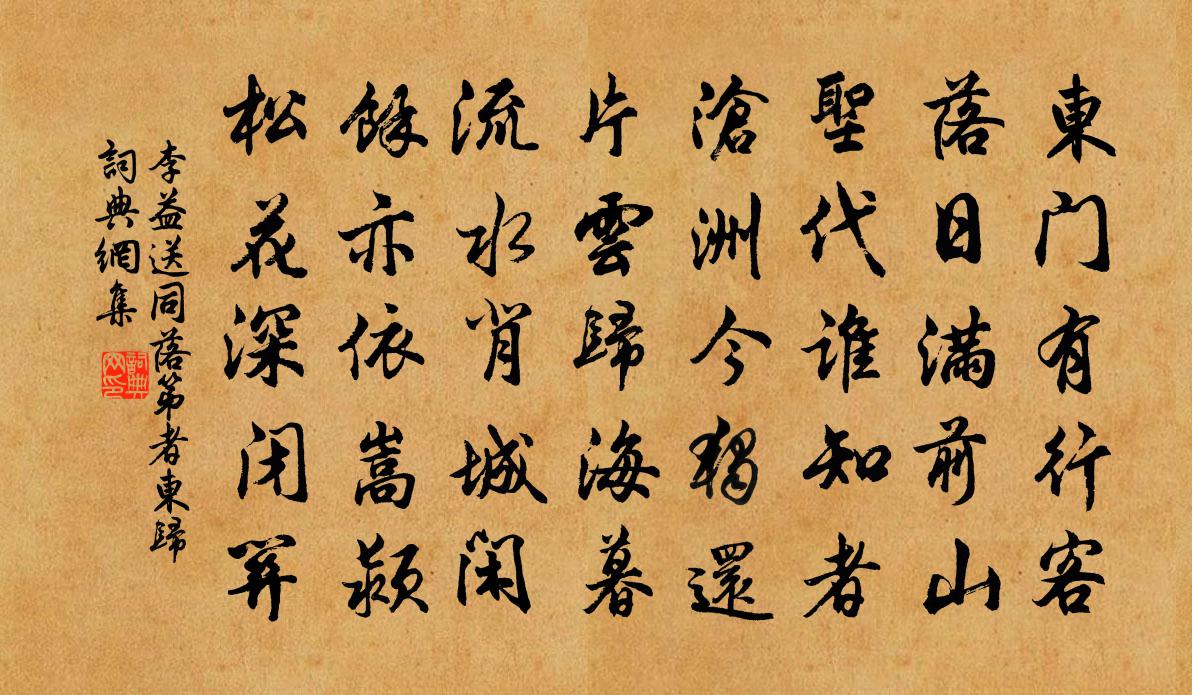 東門有行客
落日滿前山
聖代誰知者
滄洲今獨還
片雲歸海暮
流水背城閑
餘亦依嵩潁
松花深閉關
李益送同落第者東歸
詞典網集
詞典网印